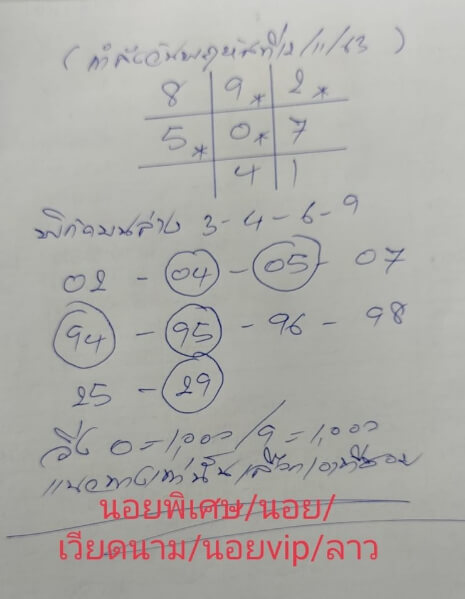 (กำลังวันพฤหันที่12/11/63)
8 9* 2*
5* 0* 7
4 1
พิกัดบนล่าง 3-4-6-9
02 - 04 - 05 - 07
94 - 95 - 96 - 98
25 - 29
วิ่ง 0=1,000/9=1,000
แนวทางเท่านั้น
นอยพิเศษ/นอย/
เวียดนาม/นอยvip/ลาว